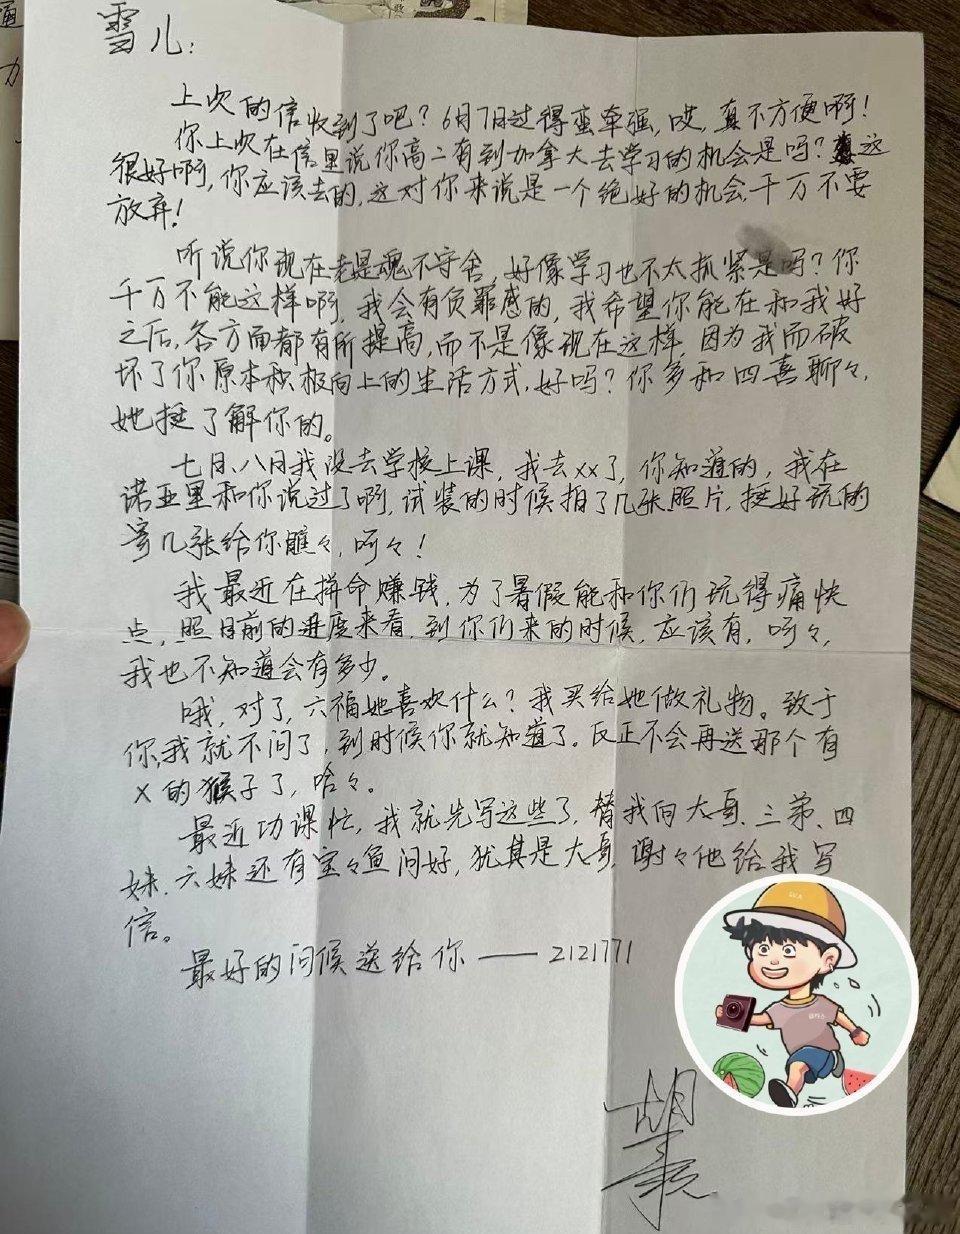 雪儿：
上次的信收到了吧？6月7日过得蛮牵强，哎，真不方便啊！
你上次在信里说你高二有到加拿大去学习的机会是吗？这
很好啊，你应该去的，这对你来说是一个绝好的机会，千万不要
放弃！
听说你现在老是魂不守舍，好像学习也不太抓紧是吗？你
千万不能这样啊，我会有负罪感的，我希望你能在和我好
之后，各方面都有所提高，而不是像现在这样，因为我而破
坏了你原本积极向上的生活方式，好吗？你多和四喜聊々，
她挺了解你的。
七月、八月我没去学校上课，我去xx了，你知道的，我在
诺亚里和你说过了啊，试装的时候拍了几张照片，挺好玩的
寄几张给你瞧々，呵々！
我最近在拼命赚钱，为了暑假能和你们玩得痛快
点，照目前的进度来看，到你们来的时候，应该有，呵々，
我也不知道会有多少。
哦，对了，六福她喜欢什么？我买给她做礼物。致于
你，我就不问了，到时候你就知道了。反正不会再送那个有
X的猴子了，哈々。
最近功课忙，我就先写这些了，替我向大哥、三弟、四
妹、六妹还有宝々鱼问好，犹其是大哥，谢々他给我写
信。
最好的问候送给你——2121771
胡